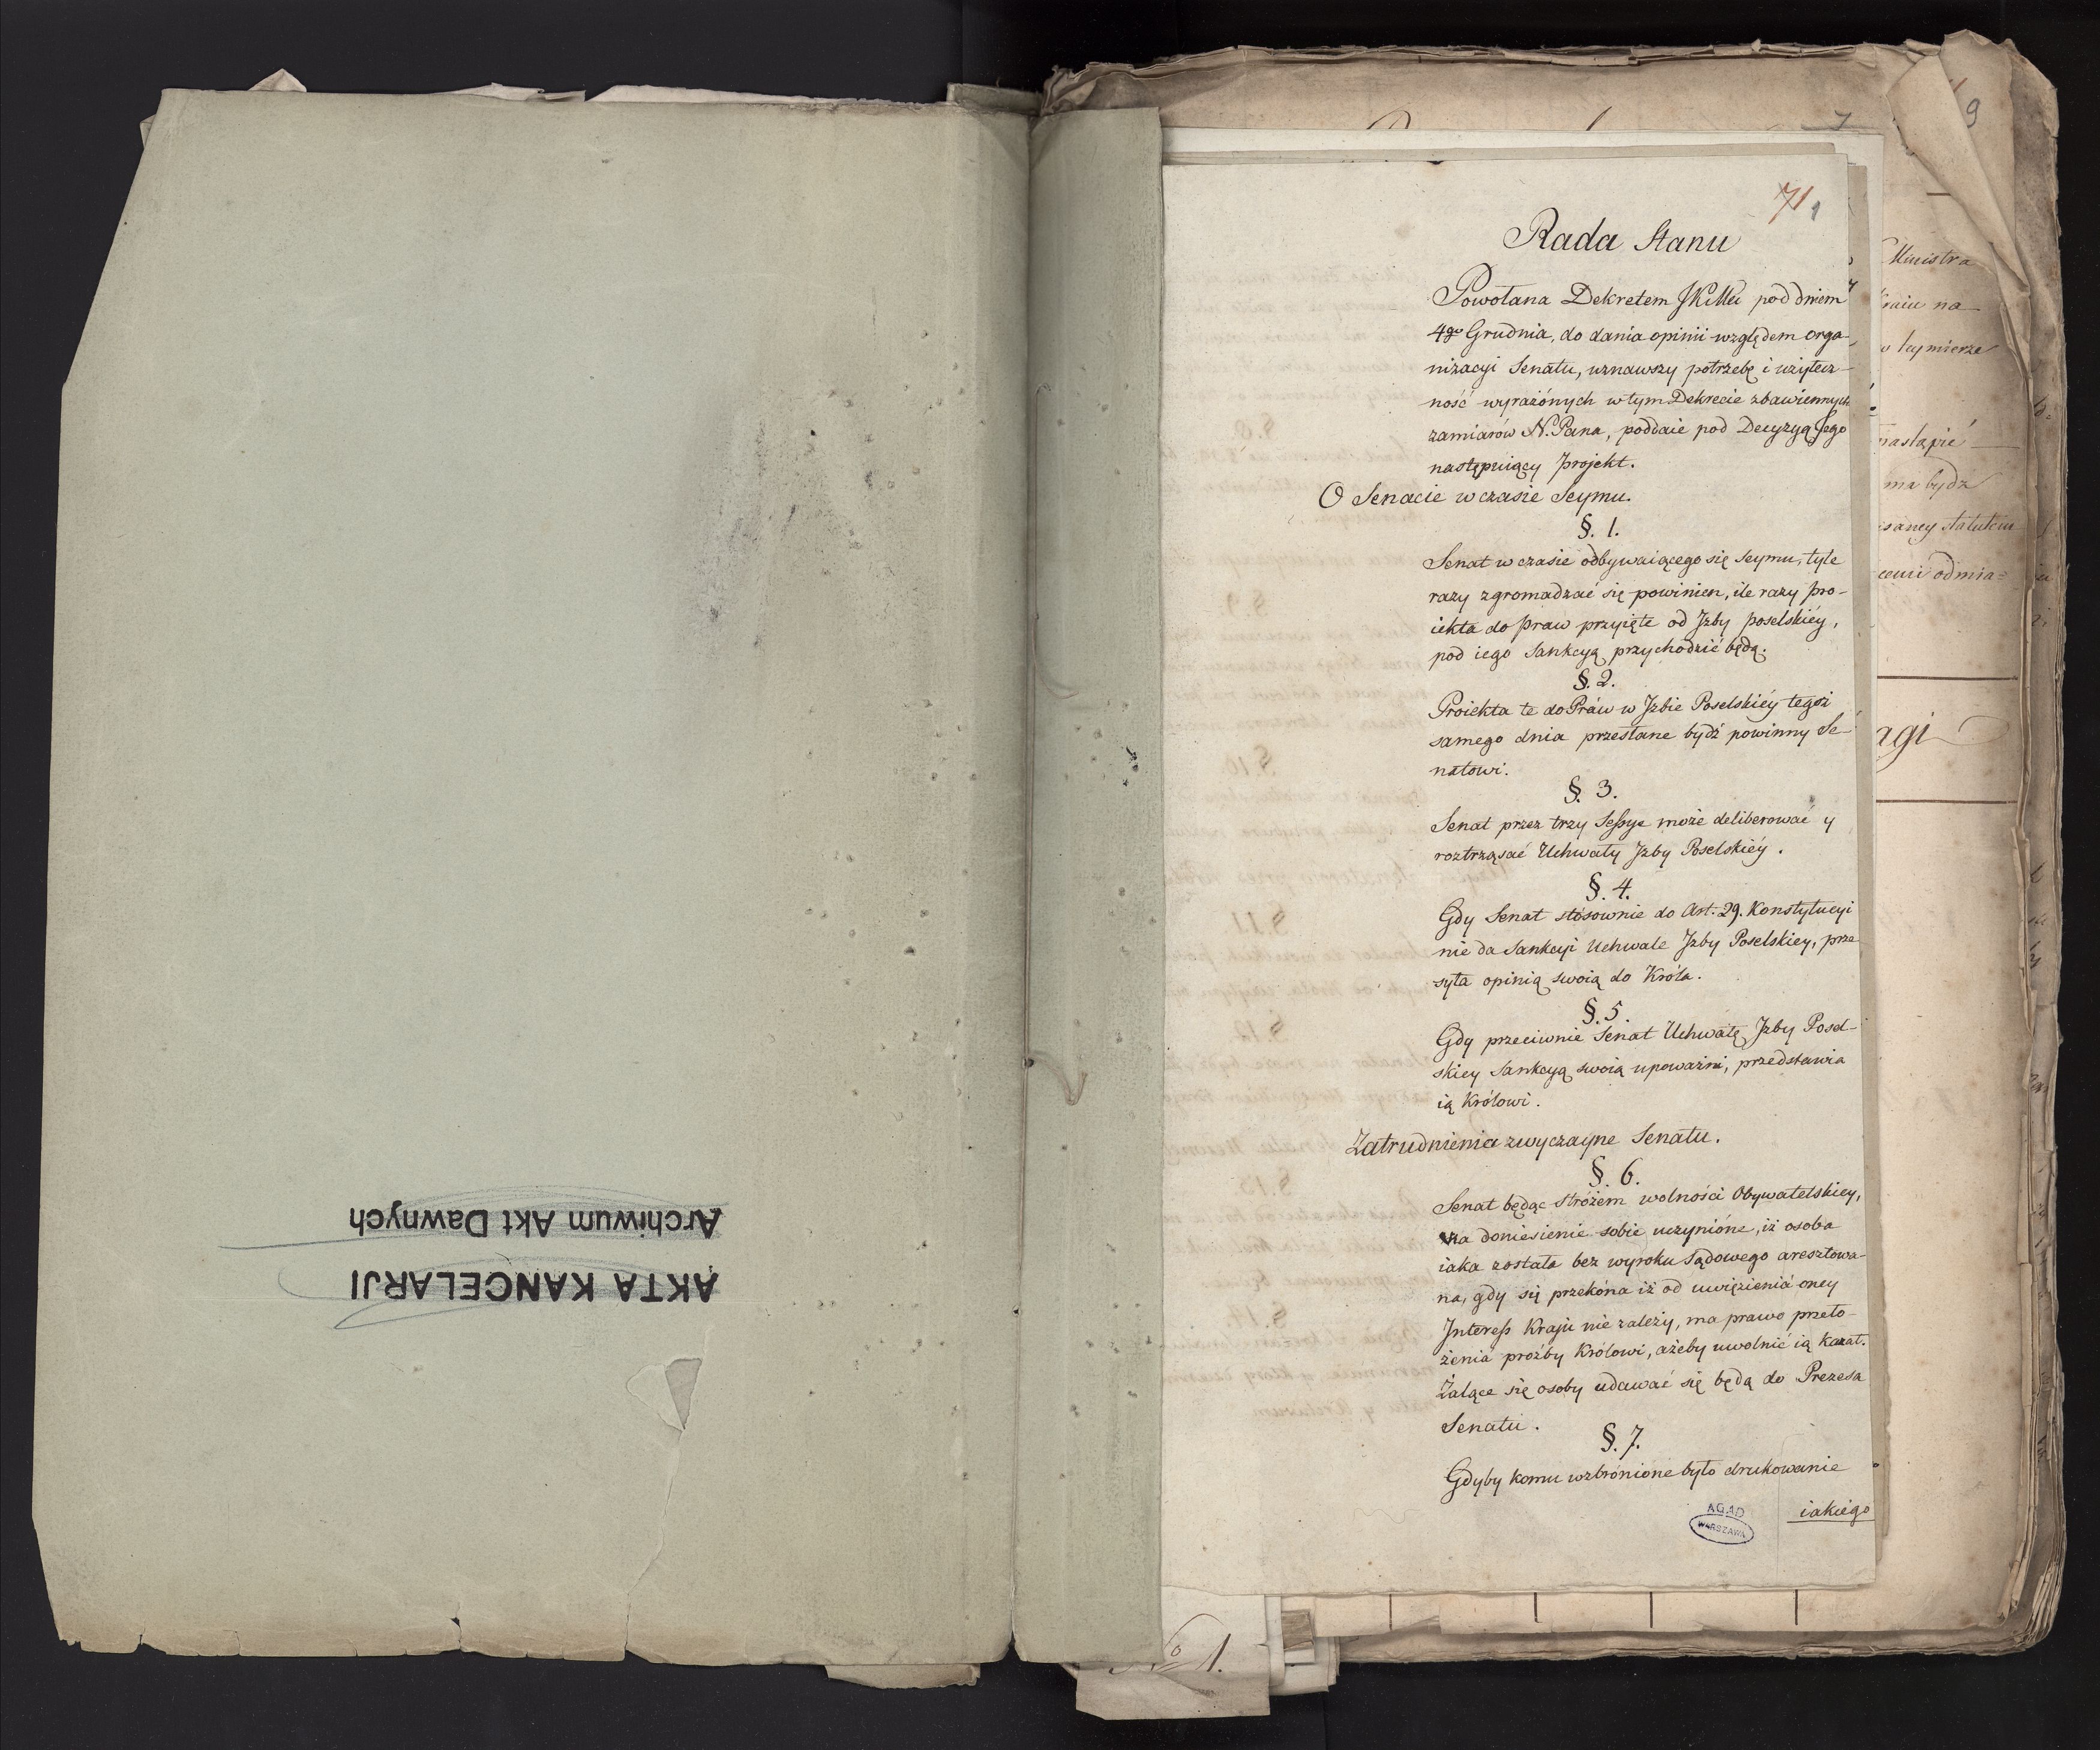 AKTA KANCELARJI
Archiwum Akt Dawnych
71 1
Rada Stanu
Powołana Dekretem JKMci pod dniem
4go Grudnia, do dania opinii względem orga-
nizacyi Senatu, uznawszy potrzebę i użytecz-
ność wyrażónych w tym Dekrecie zbawiennych
zamiarów N. Pana, poddaie pod Decyzyą Jego
następuiący projekt.
O Senacie w czasie Seymu.
§. 1.
Senat w czasie odbywaiącego się Seymu, tyle
razy zgromadzać się powinien, ile razy pro-
iekta do praw przyięte od Jzby poselskiéy,
pod iego Sankcyą przychodzić będą.
§. 2.
Proiekta te do Praw w Jzbie Poselskiéy tegoż
samego dnia przesłane bydź powinny Se-
natowi.
§. 3.
Senat przez trzy Sessye może deliberować y
roztrząsać Uchwały Jzby Poselskiéy.
§. 4.
Gdy Senat stósownie do Art. 29. Konstytucyi
nie da Sankcyi Uchwale Jzby Poselskiey, prze
syła opinią swoią do Króla.
§. 5.
Gdy przeciwnie Senat Uchwałę Jzby Posel-
skiey Sankcyą swoią upoważni, przedstawia
ią Królowi.
Zatrudnienia zwyczayne Senatu.
§. 6.
Senat będąc stróżem wolności Obywatelskiey,
na doniesienie sobie uczynióne, iż osoba
iaka została bez wyroku Sądowego aresztowa-
na, gdy się przekóna iż od uwięzienia oney
Jnteress Kraju nie zależy, ma prawo przeło-
żenia prożby Królowi, ażeby uwolnić ią kazał.
Żalące się osoby udawać się będą do Prezesa
Senatu.
§. 7.
Gdyby komu wzbrónione było drukowanie
iakiego
AGAD
WARSZAWA
9
Ministra
kraiu na
tuymierze
nastąpić
ma bydź
statutem
odmia=
No 1.